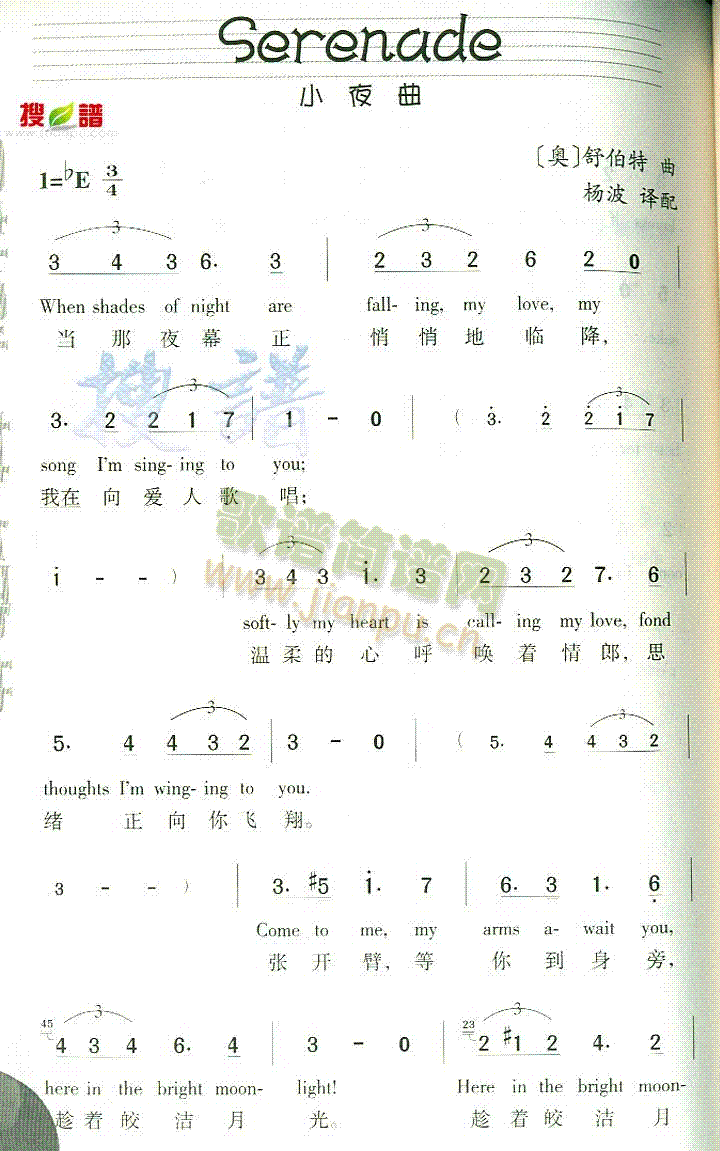 Serenade
小夜曲
搜譜
1=♭E 3/4
〔奥〕舒伯特 曲
杨波 译配
3 4 3 6. 3 | 2 3 2 6 2 0 |
When shades of night are fall- ing, my love, my
当那夜幕正 悄悄地临降,
3. 2 2 1 7 | 1 - 0 | ( 3. 2 2 1 7 |
song I'm sing- ing to you;
我在向爱人歌唱;
歌谱简谱网
www.jianpu.cn
i - - ) | 3 4 3 i. 3 | 2 3 2 7. 6 |
soft- ly my heart is call- ing my love, fond
温柔的心呼 唤着情郎,思
5. 4 4 3 2 | 3 - 0 | ( 5. 4 4 3 2 |
thoughts I'm wing- ing to you.
绪 正向你飞翔。
3 - - ) | 3. #5 i. 7 | 6. 3 1. 6 |
Come to me, my arms a- wait you,
张开臂,等 你到身旁,
45 4 3 4 6. 4 | 3 - 0 | 23 2 #1 2 4. 2 |
here in the bright moon- light! Here in the bright moon-
趁着皎洁月光。 趁着皎洁月